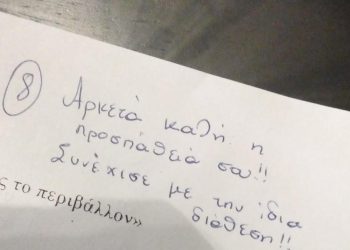 8
Αρκετά καλή η
προσπάθειά σου!!
Συνέχισε με την ίδια
διάθεση!!
ς το περιβάλλον»